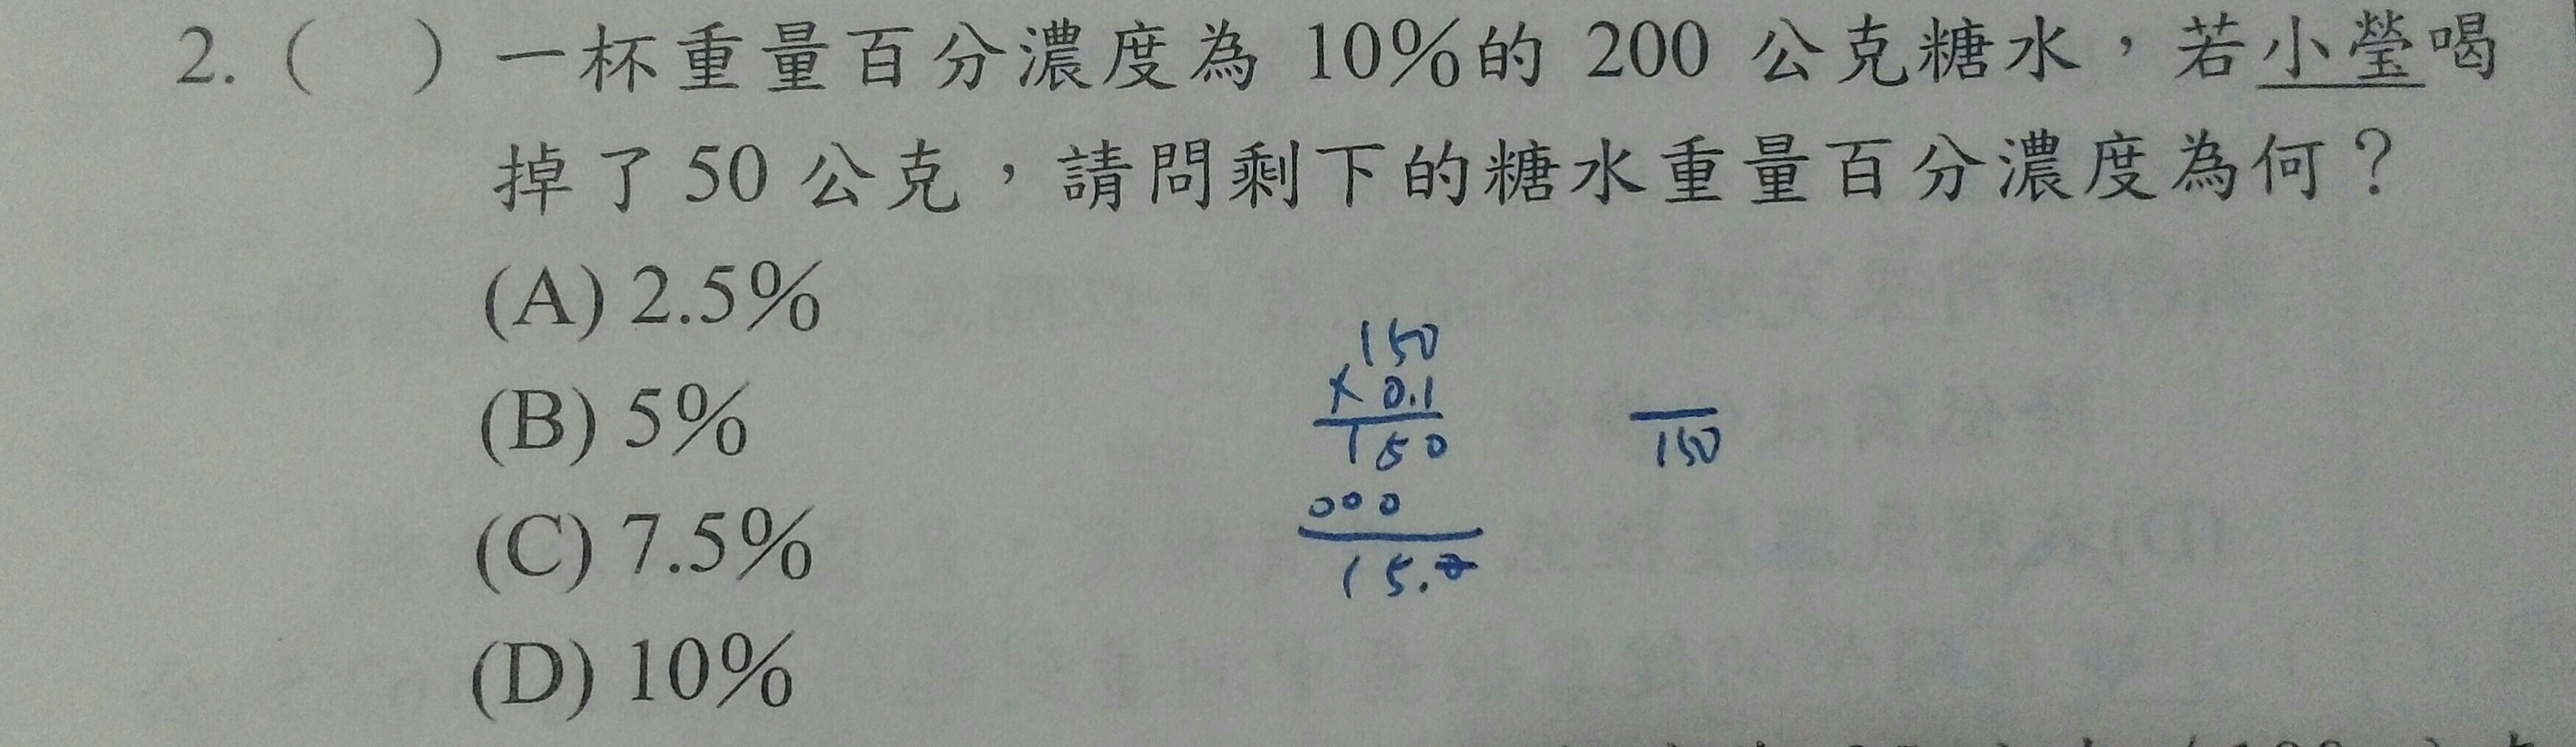 2. (　) 一杯重量百分濃度為 10%的 200 公克糖水，若小瑩喝
掉了 50 公克，請問剩下的糖水重量百分濃度為何？
(A) 2.5%
(B) 5%
(C) 7.5%
(D) 10%
150
× 0.1
150
000
15.0
150